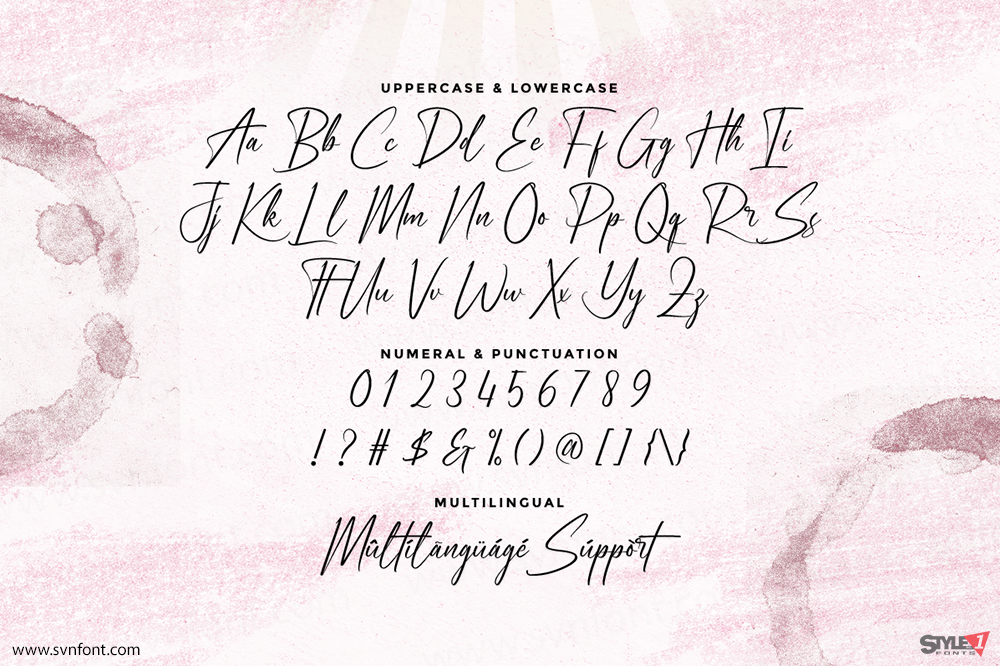 UPPERCASE & LOWERCASE
Aa Bb Cc Dd Ee Ff Gg Hh Ii
Jj Kk Ll Mm Nn Oo Pp Qq Rr Ss
Tt Uu Vv Ww Xx Yy Zz
NUMERAL & PUNCTUATION
0 1 2 3 4 5 6 7 8 9
! ? # $ & % ( ) @ [ ] { \ }
MULTILINGUAL
Mûltílãngüágé Súppòrt
www.svnfont.com
STYLE 1
FONTS